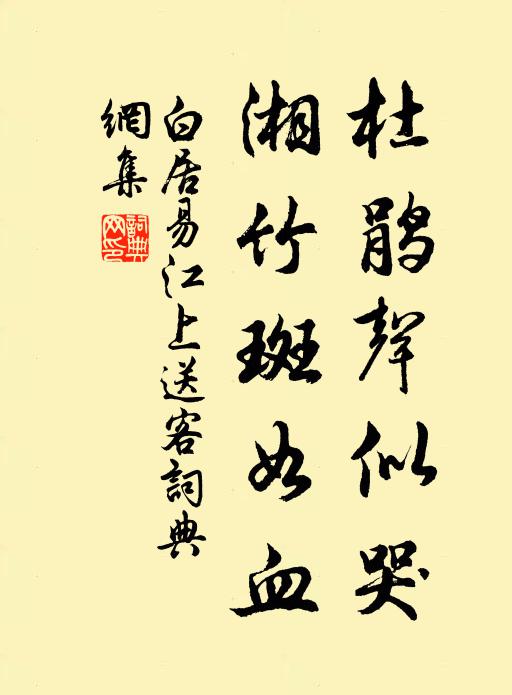 杜鹃聲似哭
湘竹斑如血
白居易江上送客詞典
網集
詞典
网印